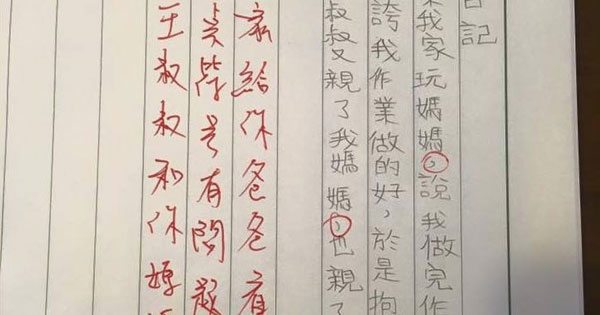 日記
我家玩媽媽，說我做完作
誇我作業做的好，於是拘
叔叔親了我媽媽，也親了
家給你爸爸看
是有問題
王叔叔和你媽